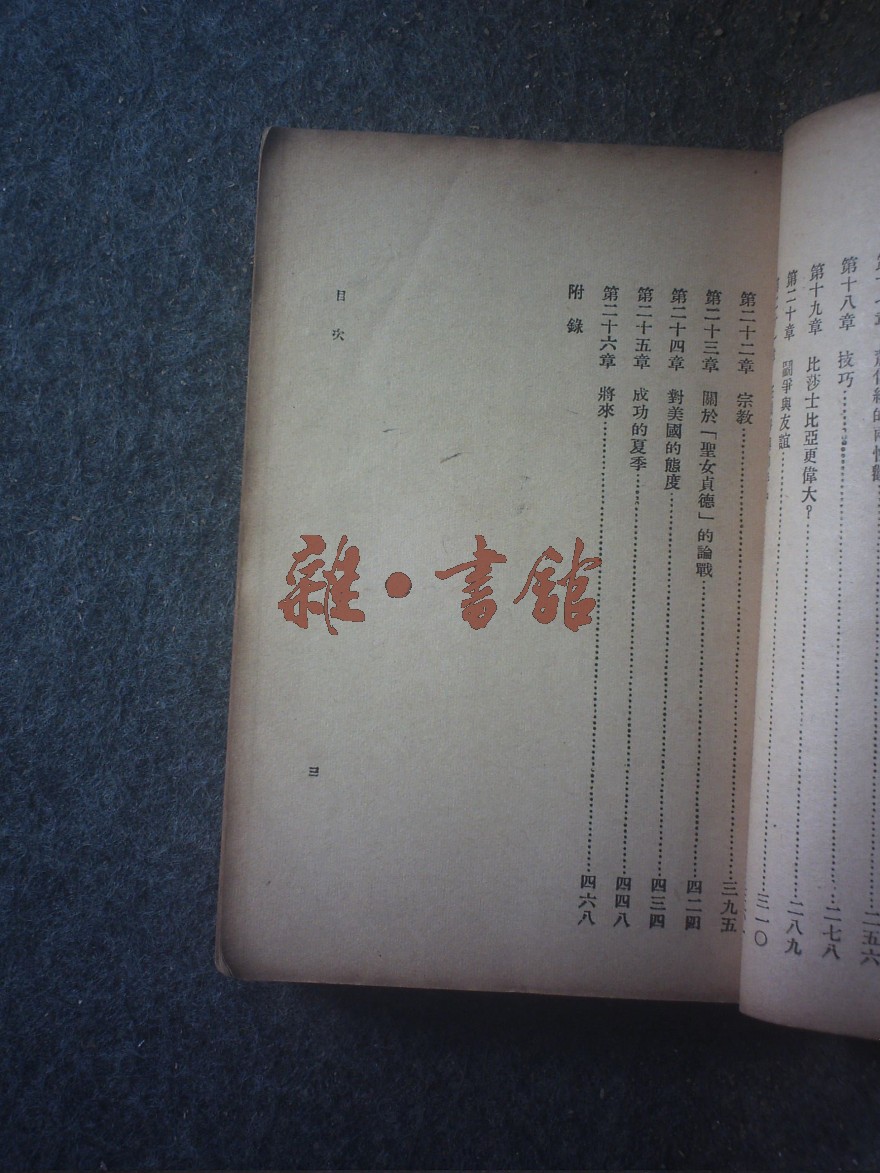 第十八章 技巧 二七八
第十九章 比莎士比亞更偉大? 二八九
第二十章 鬪爭與友誼 三一〇
第二十二章 宗教 三九五
第二十三章 關於「聖女貞德」的論戰 四二四
第二十四章 對美國的態度 四三四
第二十五章 成功的夏季 四四八
第二十六章 將來 四六八
附錄
目次
三
雜·書館